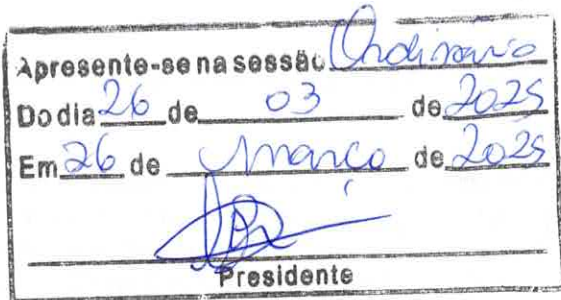 Apresente-se na sessão Ordinário
Do dia 26 de 03 de 2025
Em 26 de Março de 2025
Presidente